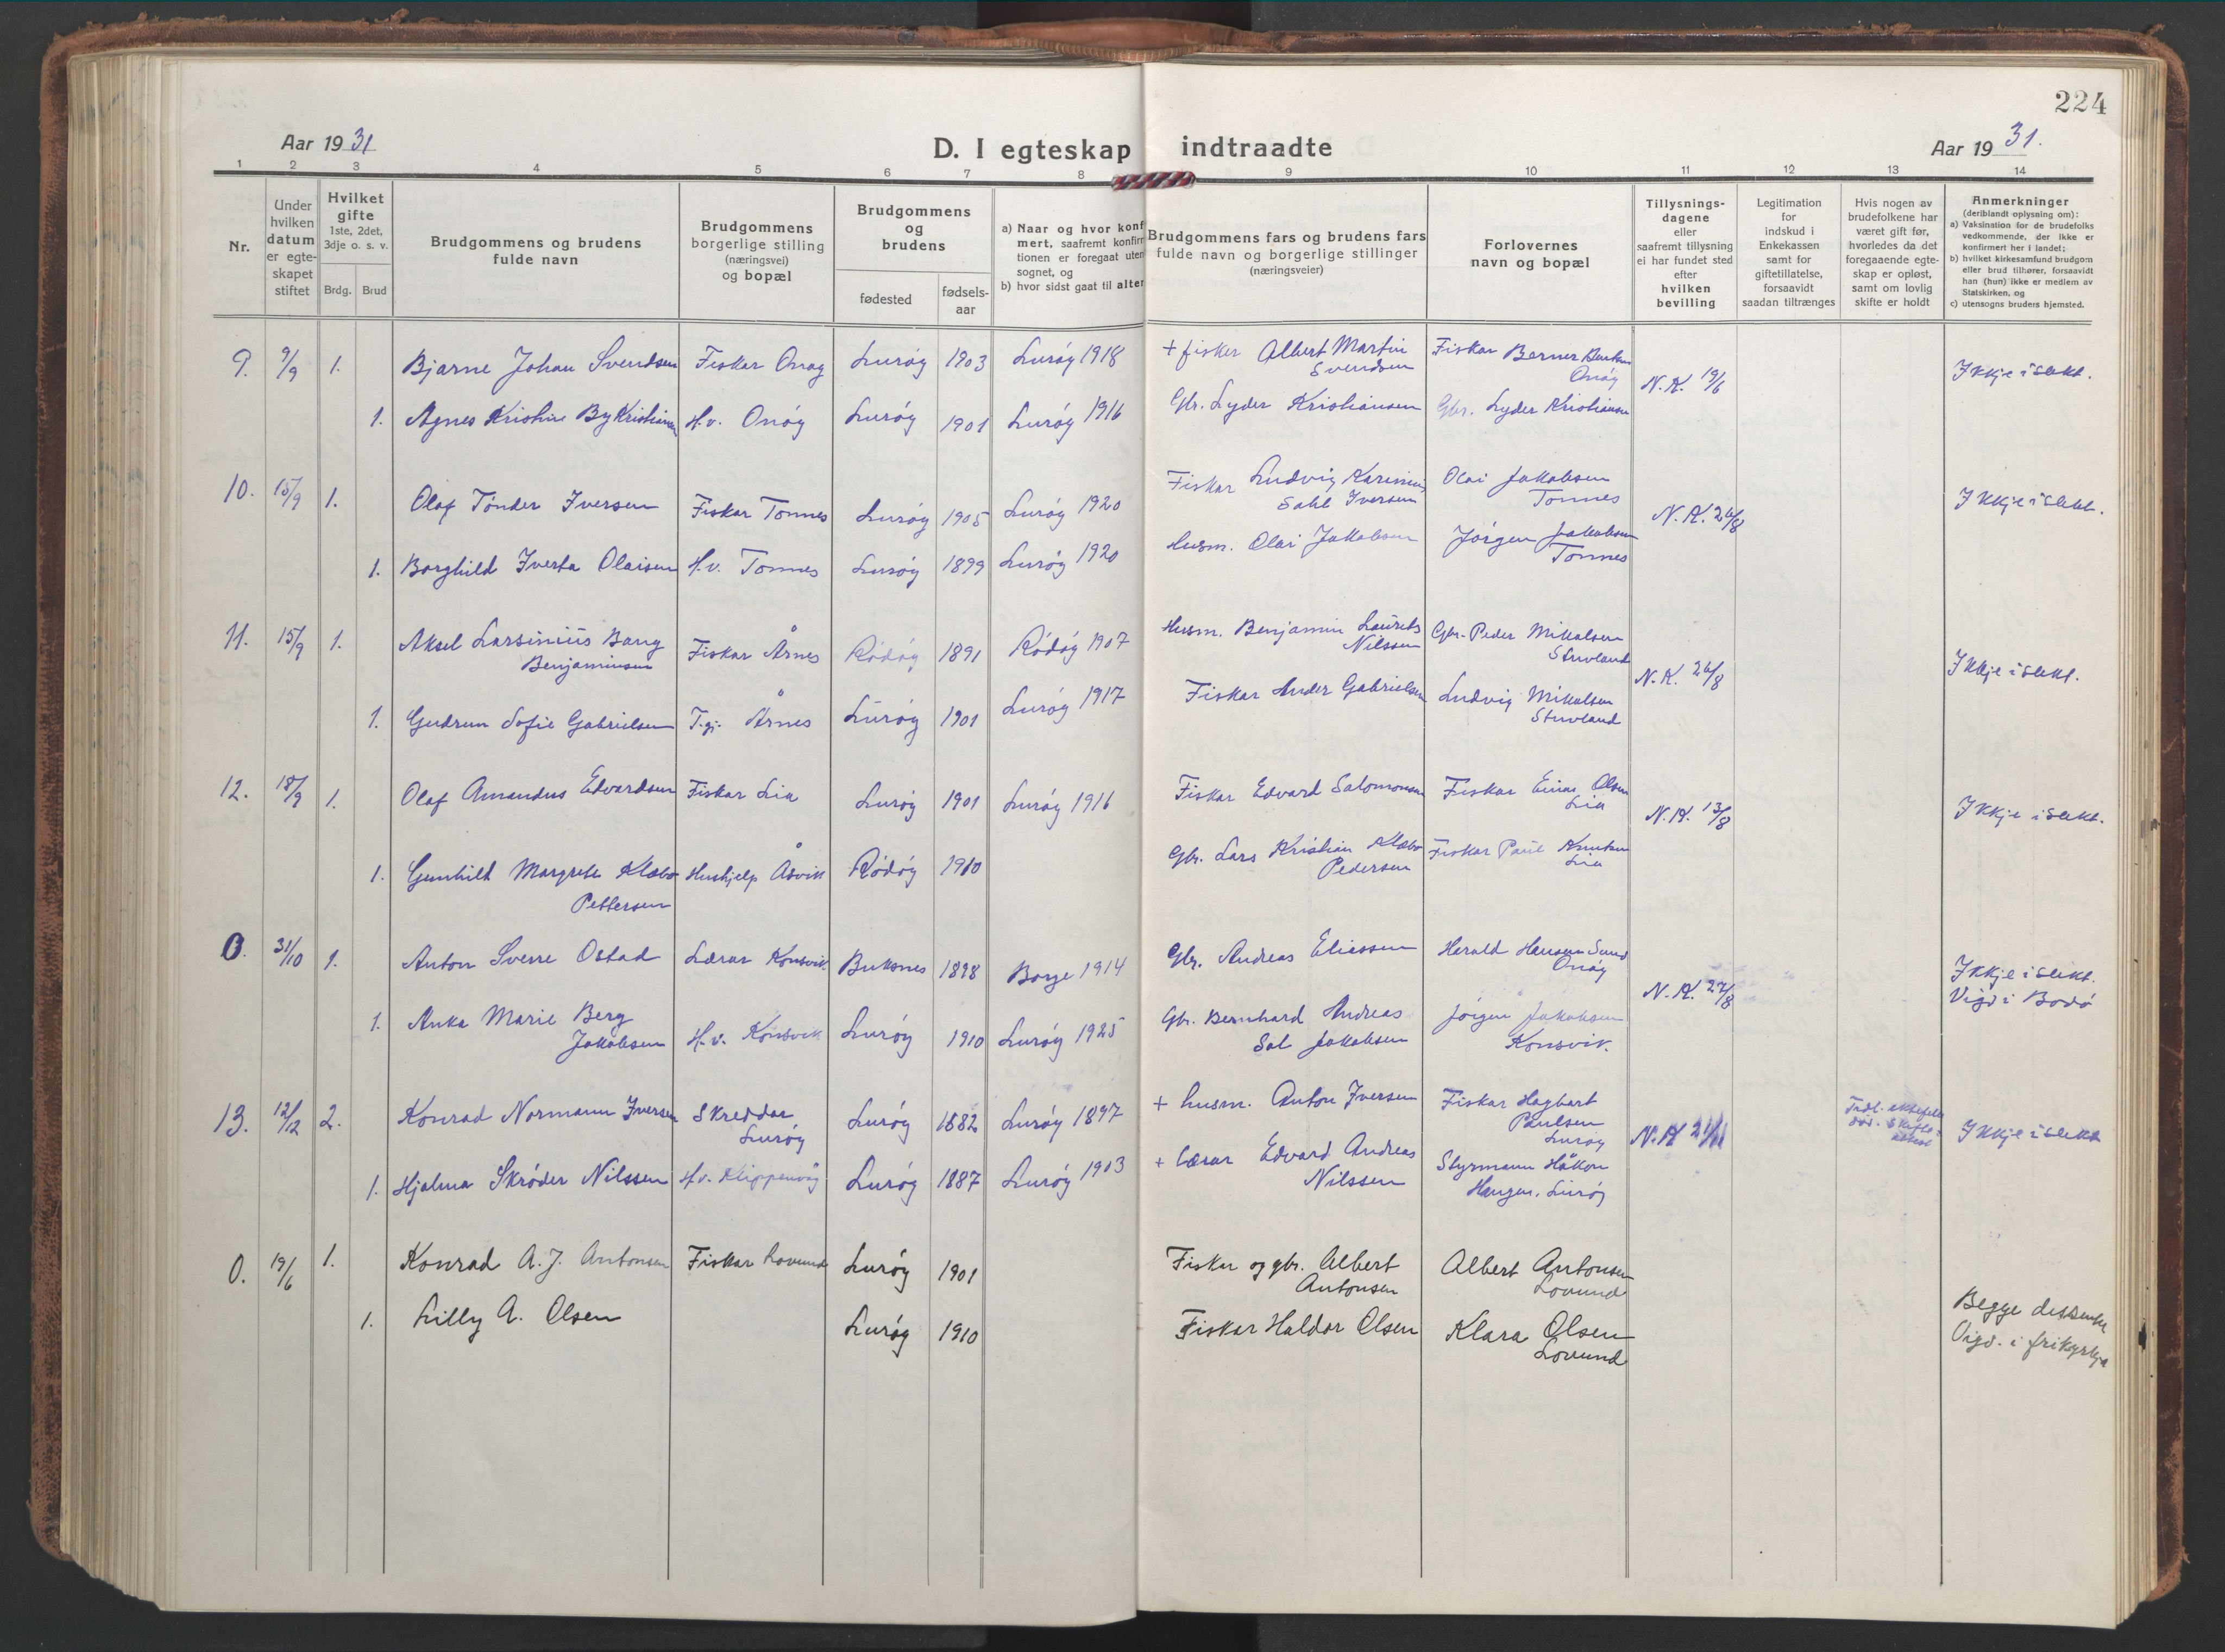 224
Aar 1931
D. I egteskap indtraadte
Aar 1931.
1 2 3 4 5 6 7 8 9 10 11 12 13 14
Nr.
Under
hvilken
datum
er egte-
skapet
stiftet
Hvilket
gifte
1ste, 2det,
3dje o. s. v.
Brdg. Brud
Brudgommens og brudens
fulde navn
Brudgommens
borgerlige stilling
(næringsvei)
og bopæl
Brudgommens
og
brudens
fødested
fødsels-
aar
a) Naar og hvor konf
mert, saafremt konfir
tionen er foregaat uten
sognet, og
b) hvor sidst gaat til alter
Brudgommens fars og brudens fars
fulde navn og borgerlige stillinger
(næringsveier)
Forlovernes
navn og bopæl
Tillysnings-
dagene
eller
saafremt tillysning
ei har fundet sted
efter
hvilken
bevilling
Legitimation
for
indskud i
Enkekassen
samt for
giftetillatelse,
forsaavidt
saadan tiltrænges
Hvis nogen av
brudefolkene har
været gift før,
hvorledes da det
foregaaende egte-
skap er opløst,
samt om lovlig
skifte er holdt
Anmerkninger
(deriblandt oplysning om):
a) Vaksination for de brudefolks
vedkommende, der ikke er
konfirmert her i landet;
b) hvilket kirkesamfund brudgom
eller brud tilhører, forsaavidt
han (hun) ikke er medlem av
Statskirken, og
c) utensogns bruders hjemsted.
9. 9/9 1. Bjarne Johan Svendsen Fiskar Onøy Lurøy 1903 Lurøy 1918 + fisker Albert Martin Svendsen Fiskar Berner Onøy N.K. 19/6 Ikkje i slekt.
1. Agnes Kristine By Kristiansen H.v. Onøy Lurøy 1901 Lurøy 1916 Gbr. Lyder Kristiansen Gbr. Lyder Kristiansen
10. 15/9 1. Olaf Tønder Iversen Fiskar Tonnes Lurøy 1905 Lurøy 1920 Fiskar Ludvig Karinius Sahl Iversen Olai Jakobsen Tonnes N.K. 26/8 Ikkje i slekt.
1. Borghild Iverta Olaisen H.v. Tonnes Lurøy 1899 Lurøy 1920 Husm. Olai Jakobsen Jørgen Jakobsen Tonnes
11. 15/9 1. Aksel Larsinius Bang Benjaminsen Fiskar Årnes Rødøy 1891 Rødøy 1907 Husm. Benjamin Laurits Nilssen Gbr. Peder Mikalsen Stuvland N.K. 26/8 Ikkje i slekt.
1. Gudrun Sofie Gabrielsen T.gj. Årnes Lurøy 1901 Lurøy 1917 Fiskar Ander Gabrielsen Ludvig Mikalsen Stuvland
12. 18/9 1. Olaf Amandus Edvardsen Fiskar Lia Lurøy 1901 Lurøy 1916 Fiskar Edvard Salomonsen Fiskar Einar Olsen Lia N.K. 13/8 Ikkje i slekt.
1. Gunhild Margrete Klæbo Pettersen Hushjelp Åsvik Rødøy 1910 Gbr. Lars Kristian Klæbo Pedersen Fiskar Paul Knutsen Lia
0. 31/10 1. Anton Sverre Ostad Lærar Konsvik Buksnes 1898 Borge 1914 Gbr. Andreas Eliassen Harald Hansen Sund Onøy N.K. 27/8 Ikkje i slekt. Vigd i Bodø
1. Anka Marie Berg Jakobsen H.v. Konsvik Lurøy 1910 Lurøy 1925 Gbr. Bernhard Andreas Sal Jakobsen Jørgen Jakobsen Konsvik.
13. 12/12 2. Konrad Normann Iversen Skreddar Lurøy Lurøy 1882 Lurøy 1897 + husm. Anton Iversen Fiskar Hagbart Paulsen Lurøy N.K 21/11 Ikkje i slekt
1. Hjalma Skrøder Nilssen H.v. Klippenvåg Lurøy 1887 Lurøy 1903 + lærar Edvard Andreas Nilssen Styrmann Håkon Haugen. Lurøy
0. 19/6 1. Konrad A. J. Antonsen Fiskar Lovund Lurøy 1901 Fiskar og gbr. Albert Antonsen Albert Antonsen Lovund Begge dissenter Vigd. i frikyrkja
1. Lilly A. Olsen Lurøy 1910 Fiskar Haldor Olsen Klara Olsen Lovund